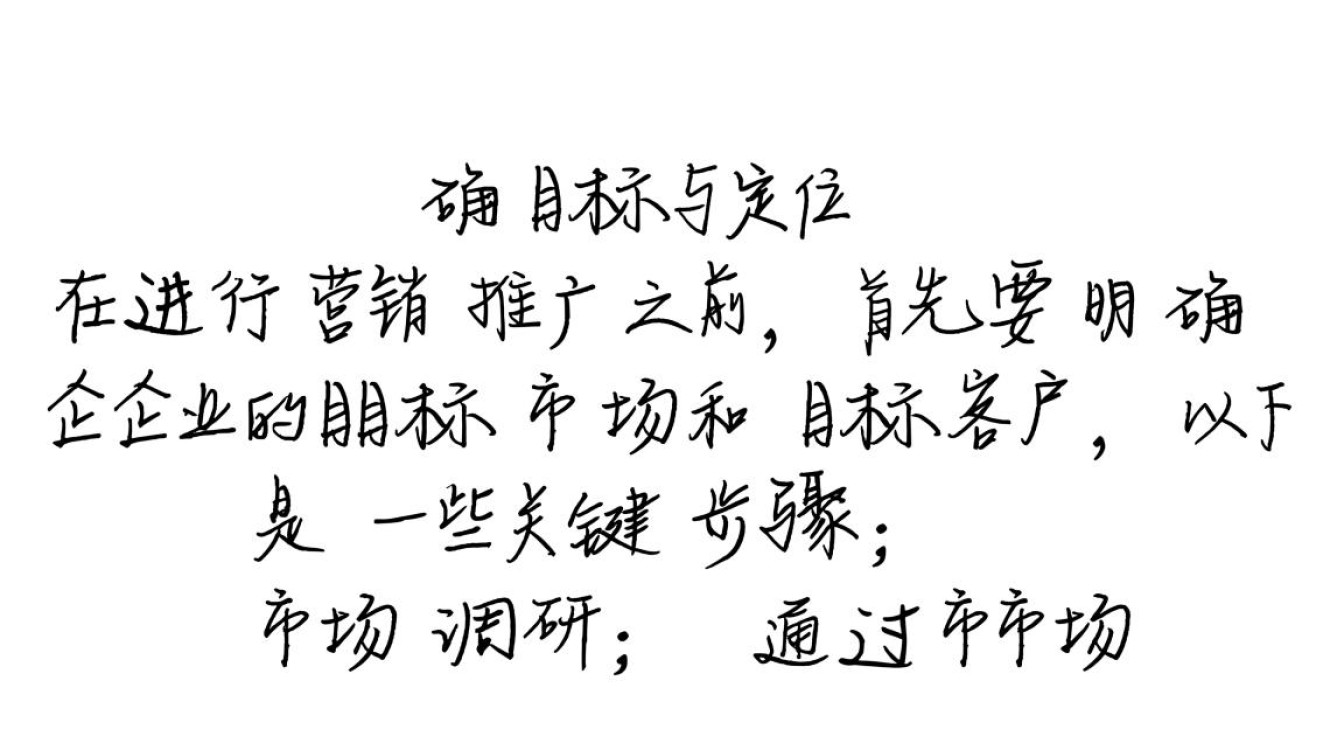 确目标与定位
在进行营销推广之前，首先要明确
企企业的目目标市场和目标客户，以下
是一些关键步骤；
市场调研；通过市市场